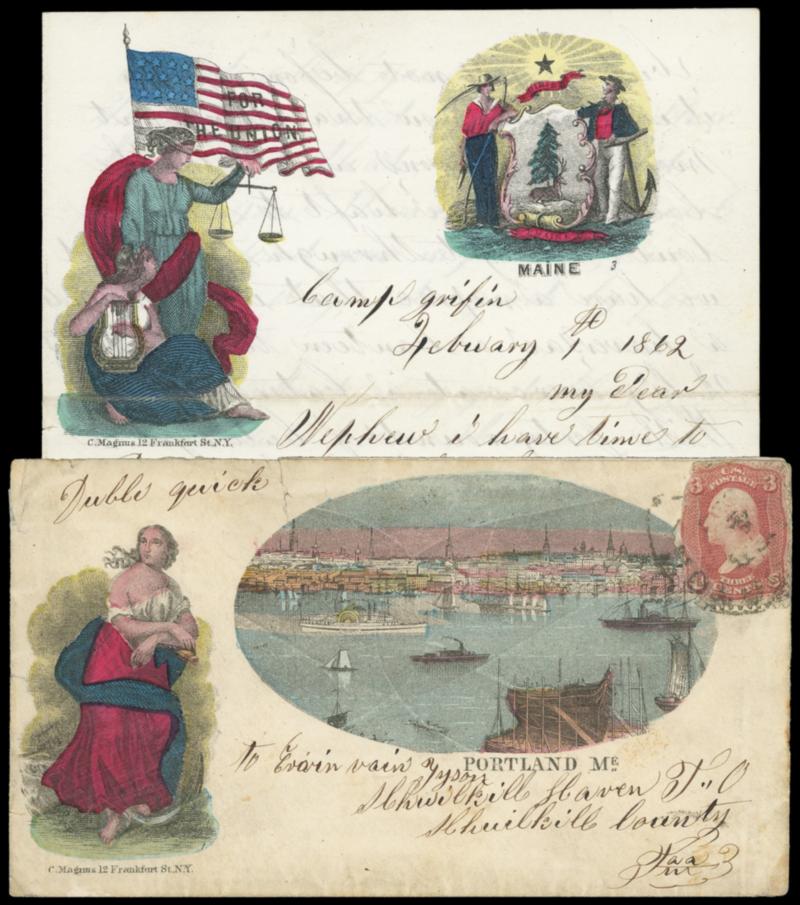 FOR
THE UNION
DIRIGO
MAINE
MAINE 3
Camp grifin
Febuary 1th 1862
my Dear
Nephew i have time to
C. Magnus 12 Frankfort St. N.Y.
Duble quick
U.S. POSTAGE
3 3
THREE
CENTS
to Ervin vain Tyson
PORTLAND ME.
Schuilkill Haven P.,O
Schuilkill County
Paa
C. Magnus 12 Frankfort St. N.Y.